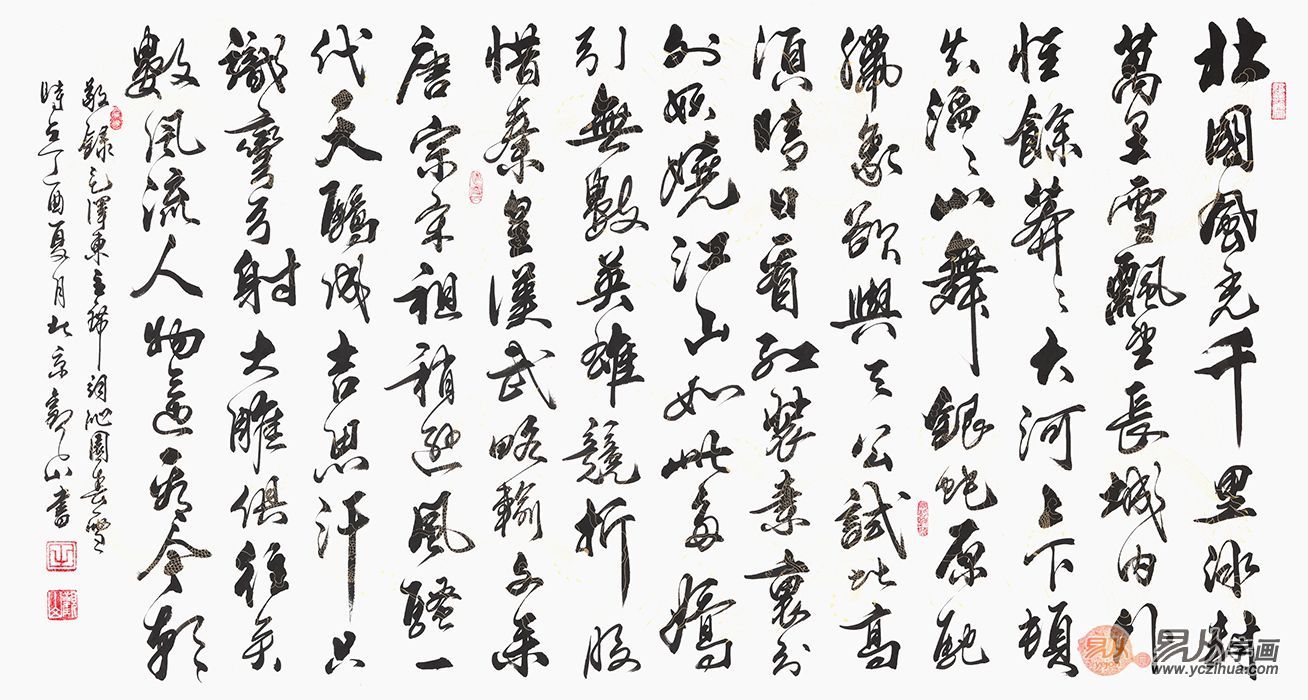 北國風光千里冰封
萬里雪飄望長城內外
惟餘莽々大河上下頓
失滔々山舞銀蛇原馳
臘象欲與天公試比高
須晴日看紅裝素裹分
外妖嬈江山如此多嬌
引無數英雄競折腰
惜秦皇漢武略輸文采
唐宗宋祖稍遜風騷一
代天驕成吉思汗只
識彎弓射大雕俱往矣
數風流人物還看今朝
敬錄毛澤東主席詞沁園春雪
時在丁酉夏月北京書
易从字画
www.yczihua.com